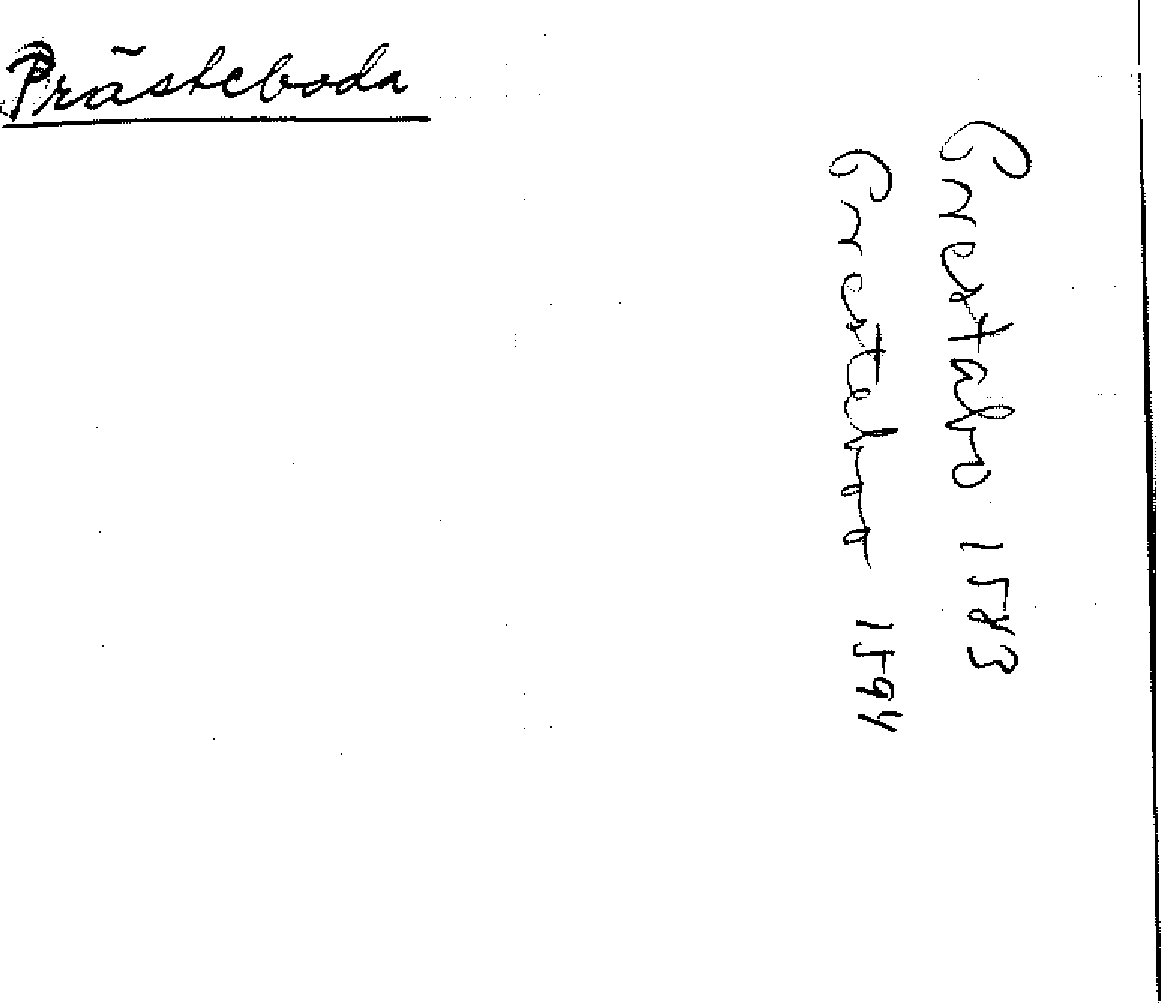 Prästeboda
Prestabo 1583
Prestebo 1594